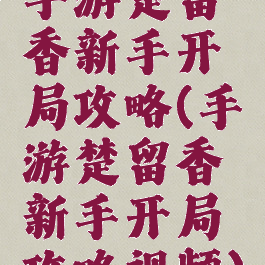 手游楚留
香新手开
局攻略(手
游楚留香
新手开局
攻略视频)